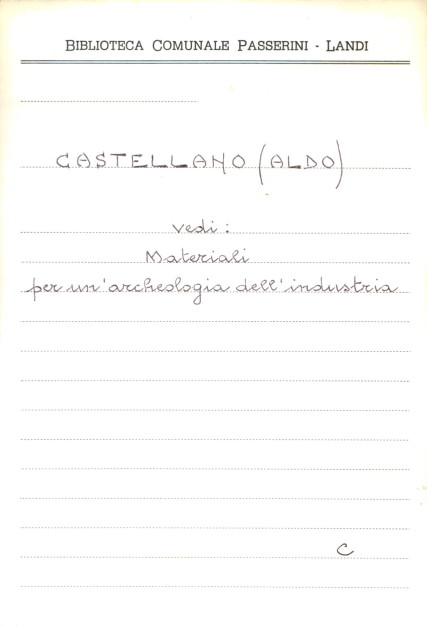 BIBLIOTECA COMUNALE PASSERINI - LANDI
CASTELLANO (ALDO)
vedi:
Materiali
per un'archeologia dell'industria
C